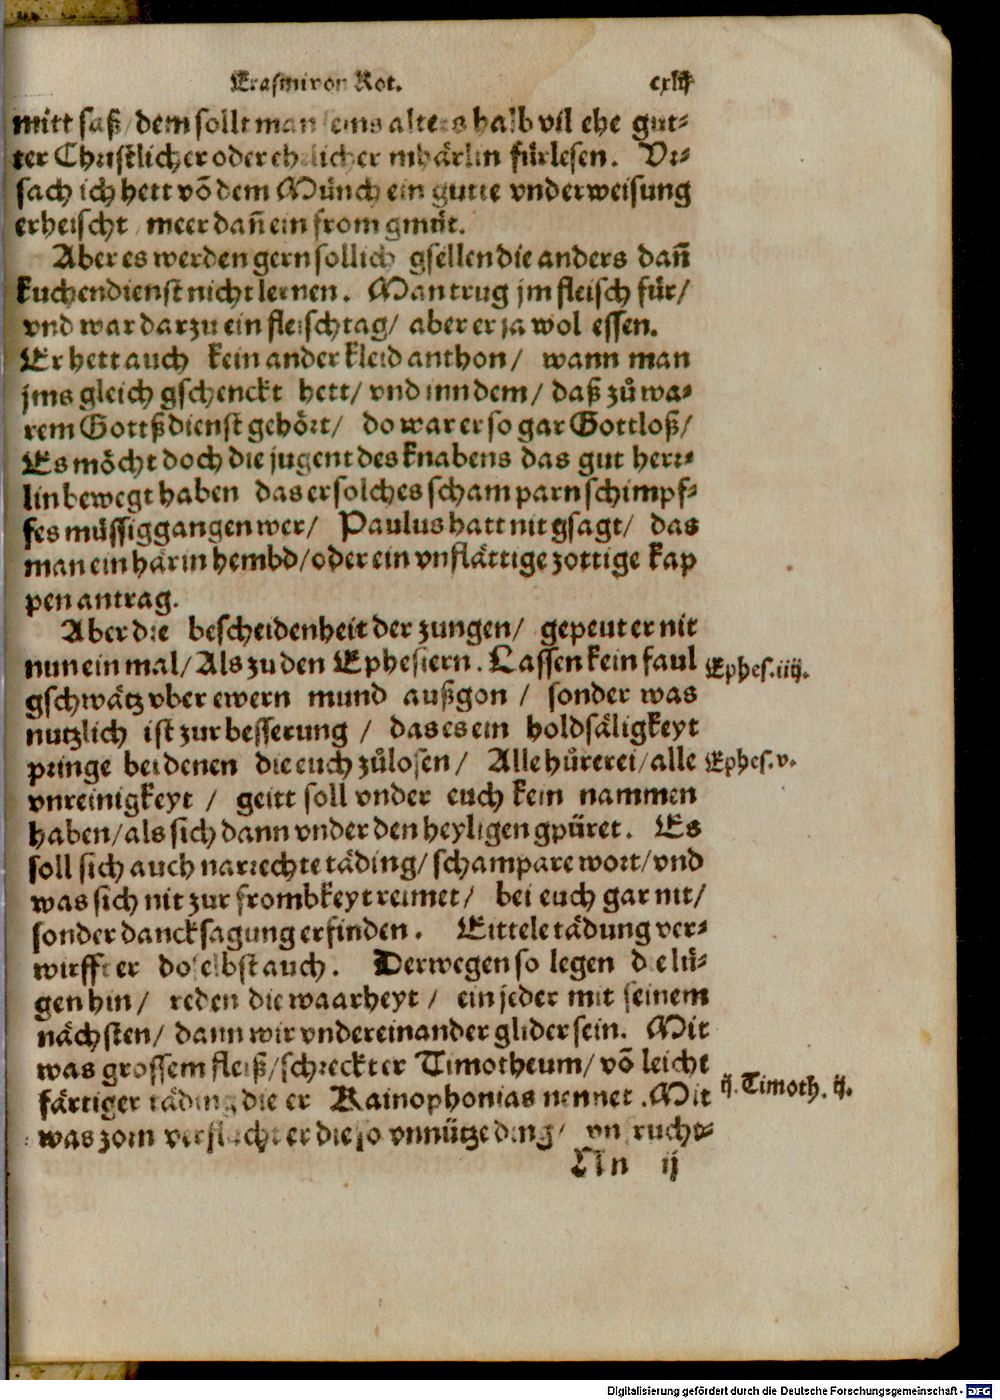 Erasmi von Rot. cxlij
mitt saß / dem sollt man seins alters halb vil ehe gut⸗
ter Christlicher oder ehrlicher mhärlin fürlesen. Vr⸗
sach ich hett võ dem Münch ein gutte vnderweisung
erheischt / meer dañ ein from gmüt.
Aber es werden gern sollich gsellen die anders dañ
kuchendienst nicht lernen. Man trug jm fleisch für/
vnd war darzu ein fleischtag/ aber er ja wol essen.
Er hett auch kein ander kleid anthon/ wann man
jms gleich gschenckt hett/ vnd inn dem/ daß zů wa⸗
rem Gottßdienst gehört/ do war er so gar Gottloß/
Es möcht doch die jugent des knabens das gut herr⸗
lin bewegt haben das er solches scham parn schimpf⸗
fes müssig gangen wer/ Paulus hatt nit gsagt/ das
man ein härin hembd/ oder ein vnflättige zottige kap
pen antrag.
Aber die bescheidenheit der zungen/ gepeut er nit
nun ein mal/ Als zu den Ephesiern. Lassen kein faul
Ephes. iiij.
gschwätz vber ewern mund außgon / sonder was
nutzlich ist zur besserung / das es ein holdsäligkeyt
pringe bei denen die euch zůlosen/ Alle hůrerei/ alle
Ephes. v.
vnreinigkeyt / geitt soll vnder euch kein nammen
haben/ als sich dann vnder den heyligen gpüret. Es
soll sich auch narrechte täding/ schampare wort/ vnd
was sich nit zur frombkeyt reimet/ bei euch gar nit/
sonder dancksagung erfinden. Eittele tädung ver⸗
wirfft er doselbst auch. Derwegen so legen die lü⸗
gen hin/ reden die waarheyt / ein jeder mit seinem
nächsten/ dann wir vndereinander glider sein. Mit
was grossem fleiß/ schreckt er Timotheum/ võ leicht
färtiger täding die er Kainophonias nennet. Mit
ij. Timoth. ij.
was zorn verflucht er die so vnnütze ding/ vn frucht⸗
Nn ij
Digitalisierung gefördert durch die Deutsche Forschungsgemeinschaft - DFG